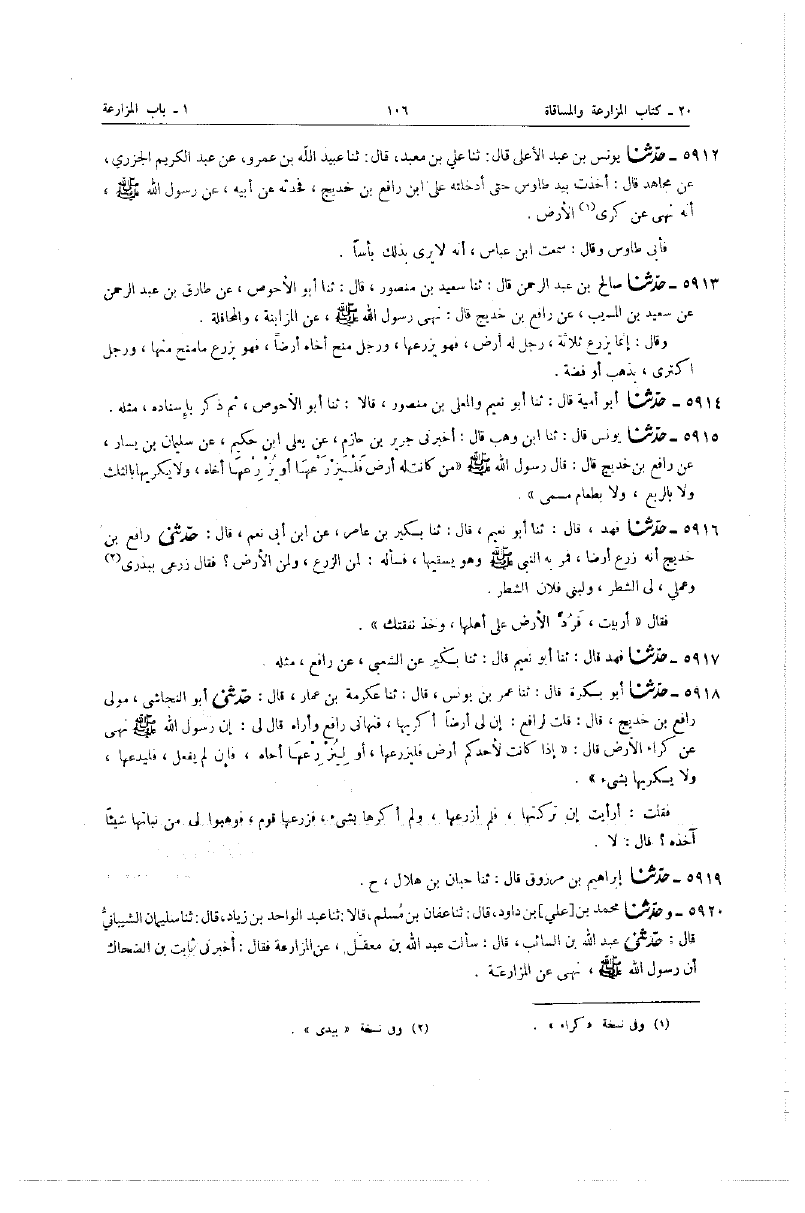 ٢٠ ـ كتاب المزارعة والمساقاة ١٠٦ ١ ـ باب المزارعة
٥٩١٢ ـ حدّثنا يونس بن عبد الأعلى قال : ثنا علي بن معبد، قال : ثنا عبيد الله بن عمرو، عن عبد الكريم الجزري ،
عن مجاهد قال : أخذت بيد طاوس حتى أدخلته على ابن رافع بن خديج ، فحدثه عن أبيه ، عن رسول الله ﷺ ،
أنه نهى عن كرى(١) الأرض .
فأبى طاوس وقال : سمعت ابن عباس ، أنه لا يرى بذلك بأساً .
٥٩١٣ ـ حدّثنا صالح بن عبد الرحمن قال : ثنا سعيد بن منصور ، قال : ثنا أبو الأحوص ، عن طارق بن عبد الرحمن
عن سعيد بن المسيب ، عن رافع بن خديج قال : نهى رسول الله ﷺ ، عن المزابنة ، والمحاقلة .
وقال : إنما يزرع ثلاثة ، رجل له أرض ، فهو يزرعها ، ورجل منح أخاه أرضاً ، فهو يزرع مامنح منها ، ورجل
اكترى ، بذهب أو فضة .
٥٩١٤ ـ حدّثنا أبو أمية قال : ثنا أبو نعيم والمعلى بن منصور ، قالا : ثنا أبو الأحوص ، ثم ذكر بإسناده ، مثله .
٥٩١٥ ـ حدّثنا يونس قال : ثنا ابن وهب قال : أخبرنى جرير بن حازم ، عن يعلى ابن حكيم ، عن سليمان بن يسار ،
عن رافع بن خديج قال : قال رسول الله ﷺ «من كانت له أرض فَلْيَزْرَعْهَا أو يُزْرِعْهَا أخاه ، ولا يكريها بالثلث
ولا بالربع ، ولا بطعام مسمى » .
٥٩١٦ ـ حدّثنا فهد ، قال : ثنا أبو نعيم ، قال : ثنا بكير بن عامر ، عن ابن أبى نعم ، قال : حدّثنى رافع بن
خديج أنه زرع أرضا ، فمر به النبي ﷺ وهو يسقيها ، فسأله : لمن الزرع ، ولمن الأرض ؟ فقال زرعى ببذرى(٢)
وعملى ، لى الشطر ، ولبنى فلان الشطر .
فقال « أربيت ، فَرُدَّ الأرض على أهلها ، وخذ نفقتك » .
٥٩١٧ ـ حدّثنا فهد قال : ثنا أبو نعيم قال : ثنا بكير عن الشعبى ، عن رافع ، مثله .
٥٩١٨ ـ حدّثنا أبو بكرة قال : ثنا عمر بن يونس ، قال : ثنا عكرمة بن عمار ، قال : حدّثنى أبو النجاشى ، مولى
رافع بن خديج ، قال : قلت لرافع : إن لى أرضاً أكريها ، فنهانى رافع وأراه قال لى : إن رسول الله ﷺ نهى
عن كراء الأرض قال : « إذا كانت لأحدكم أرض فليزرعها ، أو لِيُزْرِعْهَا أخاه ، فإن لم يفعل ، فليدعها ،
ولا يكريها بشىء » .
فقلت : أرأيت إن تركتها ، فلم أزرعها ، ولم أكرها بشىء ، فزرعها قوم ، فوهبوا لى من نباتها شيئاً
آخذه ؟ قال : لا .
٥٩١٩ ـ حدّثنا إبراهيم بن مرزوق قال : ثنا حبان بن هلال ، ح .
٥٩٢٠ ـ وحدّثنا محمد بن [علي] بن داود، قال : ثنا عفان بن مُسلم ، قالا : ثنا عبد الواحد بن زياد، قال : ثنا سليمان الشيبانيُّ
قال : حدّثنى عبد الله بن السائب ، قال : سألت عبد الله بن معقل ، عن المزارعة فقال : أخبرنى ثابت بن الضحاك
أن رسول الله ﷺ ، نهى عن المزارعة .
(١) وفى نسخة «كراء» . (٢) وفى نسخة « بيدى » .